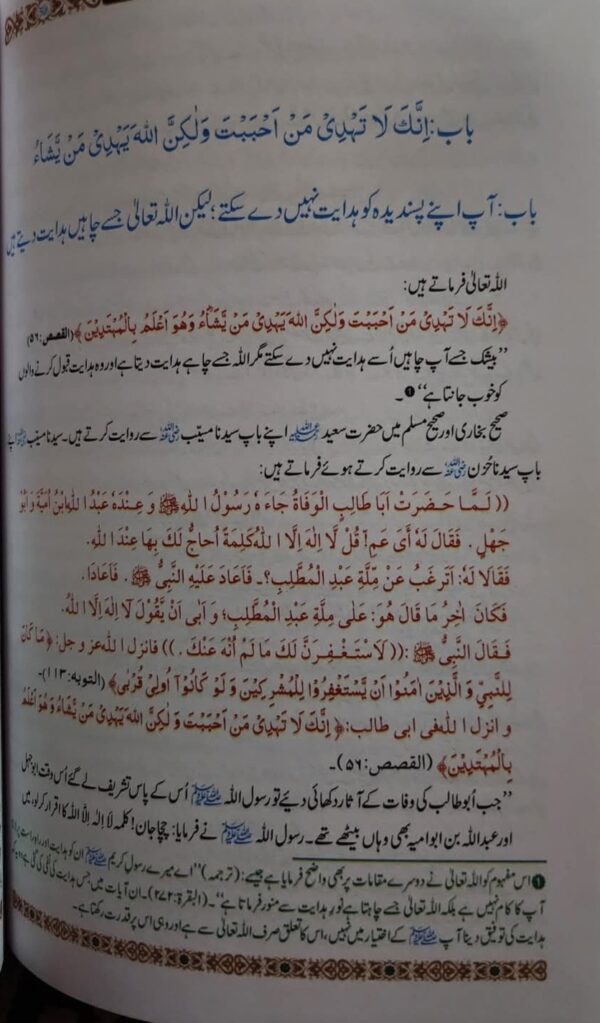 باب: اِنَّكَ لَا تَهْدِىْ مَنْ اَحْبَبْتَ وَلٰكِنَّ اللهَ يَهْدِىْ مَنْ يَّشَآءُ
باب: آپ اپنے پسندیدہ کو ہدایت نہیں دے سکتے؛ لیکن اللہ تعالیٰ جسے چاہیں ہدایت دیتے ہیں
اللہ تعالیٰ فرماتے ہیں:
﴿اِنَّكَ لَا تَهْدِىْ مَنْ اَحْبَبْتَ وَلٰكِنَّ اللهَ يَهْدِىْ مَنْ يَّشَآءُ وَهُوَ اَعْلَمُ بِالْمُهْتَدِيْنَ﴾ (القصص:۵۶)
’’بیشک جسے آپ چاہیں اُسے ہدایت نہیں دے سکتے مگر اللہ جسے چاہے ہدایت دیتا ہے اور وہ ہدایت قبول کرنے والوں
کو خوب جانتا ہے‘‘ ❶ ۔
صحیح بخاری اور صحیح مسلم میں حضرت سعید رحمہ اللہ اپنے باپ سیدنا مسیّب رضی اللہ عنہ سے روایت کرتے ہیں۔ سیدنا مسیّب اپنے
باپ سیدنا حُزن رضی اللہ عنہ سے روایت کرتے ہوئے فرماتے ہیں:
(( لَـمَّا حَضَرَتْ اَبَا طَالِبٍ الْوَفَاةُ جَاءَ هٗ رَسُوْلُ ا للهِ ﷺ وَ عِنْدَهٗ عَبْدُ ا للهِ ابْنُ اُمَيَّةَ وَ اَبُوْ
جَهْلٍ . فَقَالَ لَهٗ اَىْ عَمِ! قُلْ لَا اِلٰهَ اِلَّا ا للهُ كَلِمَةً اُحَاجُّ لَكَ بِهَا عِنْدَ ا للهِ.
فَقَالَا لَهٗ: اَتَرْغَبُ عَنْ مِلَّةِ عَبْدِ الْمُطَّلِبِ؟ـ فَاَعَادَ عَلَيْهِ النَّبِىُّ ﷺ . فَاَعَادَا.
فَكَانَ اٰخِرُ مَا قَالَ هُوَ: عَلٰى مِلَّةِ عَبْدِ الْمُطَّلِبِ؛ وَ اَبٰى اَنْ يَّقُوْلَ لَا اِلٰهَ اِلَّا ا للهُ.
فَـقَالَ النَّبِىُّ ﷺ :(( لَاَسْتَـغْـفِـرَنَّ لَكَ مَا لَمْ اُنْهَ عَنْكَ . )) فانزل ا لله عز و جل: ﴿مَا كَانَ
لِلنَّبِىِّ وَ الَّذِيْنَ اٰمَنُوْا اَنْ يَّسْتَغْفِرُوْا لِلْمُشْرِكِيْنَ وَ لَوْ كَانُوْٓا اُولِىْ قُرْبٰى﴾ (التوبه:۱۱۳)ـ
و انزل ا لله فى ابى طالب: ﴿اِنَّكَ لَا تَهْدِىْ مَنْ اَحْبَبْتَ وَ لٰكِنَّ اللهَ يَهْدِىْ مَنْ يَّشَآءُ وَ هُوَ اَعْلَمُ
بِالْمُهْتَدِيْنَ﴾ (القصص:۵۶)ـ
’’جب اُبو طالب کی وفات کے آثار دکھائی دیئے تو رسول اللہ ﷺ اُس کے پاس تشریف لے گئے اُس وقت ابو جہل
اور عبد اللہ بن ابو امیہ بھی وہاں بیٹھے تھے۔ رسول اللہ ﷺ نے فرمایا: چچا جان! کلمہ لَا اِلٰہَ اِلَّا اللہُ کا اقرار کرلو، میں
❶ اس مفہوم کو اللہ تعالیٰ نے دوسرے مقامات پر بھی واضح فرمایا ہے جیسے: (ترجمہ) ’’اے میرے رسولِ کریم ﷺ ان کو ہدایت اور راہ راست پر لانا
آپ کا کام نہیں ہے بلکہ اللہ تعالیٰ جسے چاہتا ہے نورِ ہدایت سے منور فرماتا ہے‘‘۔ (البقرۃ:۲۷۲)۔ ان آیات میں جس ہدایت کی نفی کی گئی ہے
ہدایت کی توفیق دینا آپ ﷺ کے اختیار میں نہیں، اس کا تعلق صرف اللہ تعالیٰ سے ہے اور وہی اس پر قدرت رکھتا ہے۔